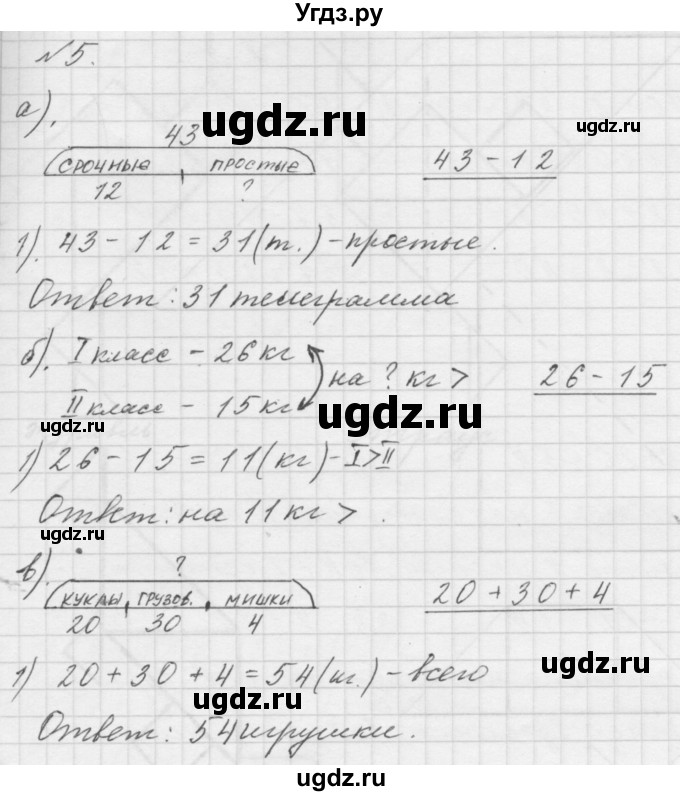 Угдз.ру
№5.
а).
43
срочные простые
12 ?
43 - 12
1). 43 - 12 = 31 (т.) - простые.
Ответ: 31 телеграмма
б). I класс - 26 кг
на ? кг >
26 - 15
II класс - 15 кг
1) 26 - 15 = 11 (кг) - I > II
Ответ: на 11 кг > .
в).
?
куклы грузов. мишки
20 30 4
20 + 30 + 4
1) 20 + 30 + 4 = 54 (иг.) - всего
Ответ: 54 игрушки.
ugdz.ru
ugdz.ru
ugdz.ru
ugdz.ru
ugdz.ru
ugdz.ru
ugdz.ru
ugdz.ru
ugdz.ru